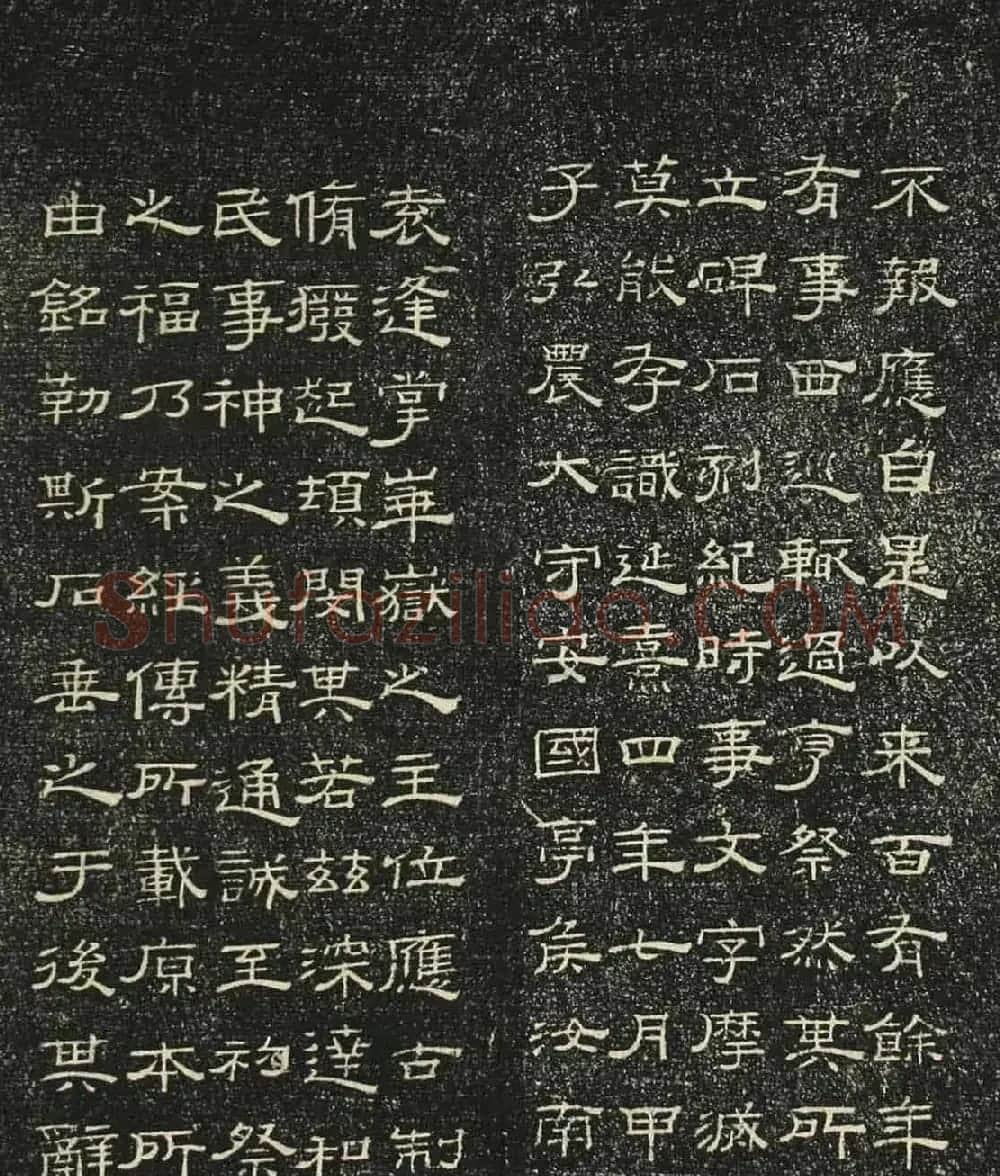 不報應自是以来百有餘年
有事西巡輒過亨祭然其所
立碑石刻紀時事文字摩滅
莫能存識延熹四年七月甲
子弘農大守安國亭侯汝南
袁逢掌崋嶽之主位應古制
脩癈起頓閔其若茲深達和
民事神之義精通誠至礿祭
之福乃案經傳所載原本所
由銘勒斯石垂之于後其辭
Shufaziliao.COM